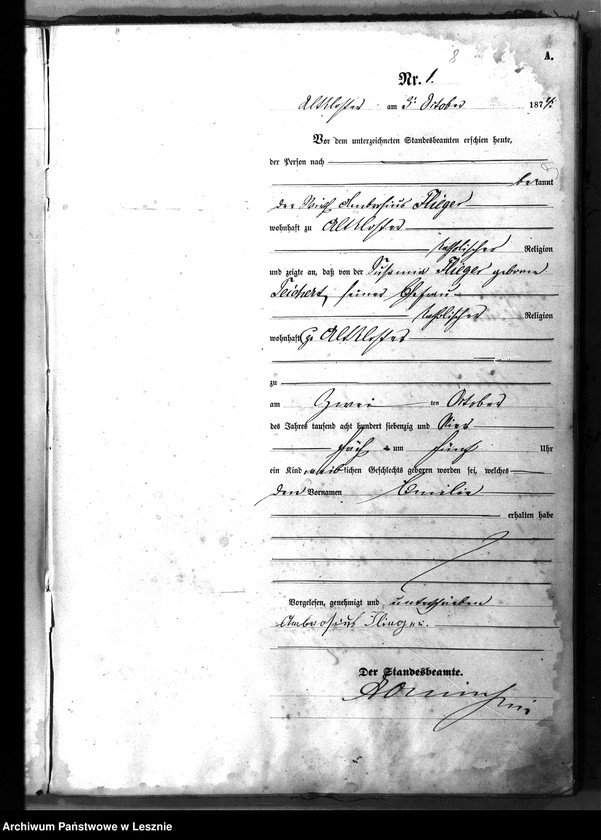 8
A.
Nr. 1.
Altkloster am 3. October 1874.
Vor dem unterzeichneten Standesbeamten erschien heute,
der Person nach
bekannt
der Wirth Ambrosius Flieger
wohnhaft zu Altkloster
katholischer Religion
und zeigte an, daß von der Susanna Flieger geborne
Teichert, seiner Ehefrau
katholischer Religion
wohnhaft zu Altkloster
zu
am Zwei ten October
des Jahres tausend acht hundert siebenzig und Vier
früh um fünf Uhr
ein Kind weiblichen Geschlechts geboren worden sei, welches
den Vornamen Emilie
erhalten habe
Vorgelesen, genehmigt und unterschrieben
Ambrosius Flieger.
Der Standesbeamte.
Archiwum Państwowe w Lesznie